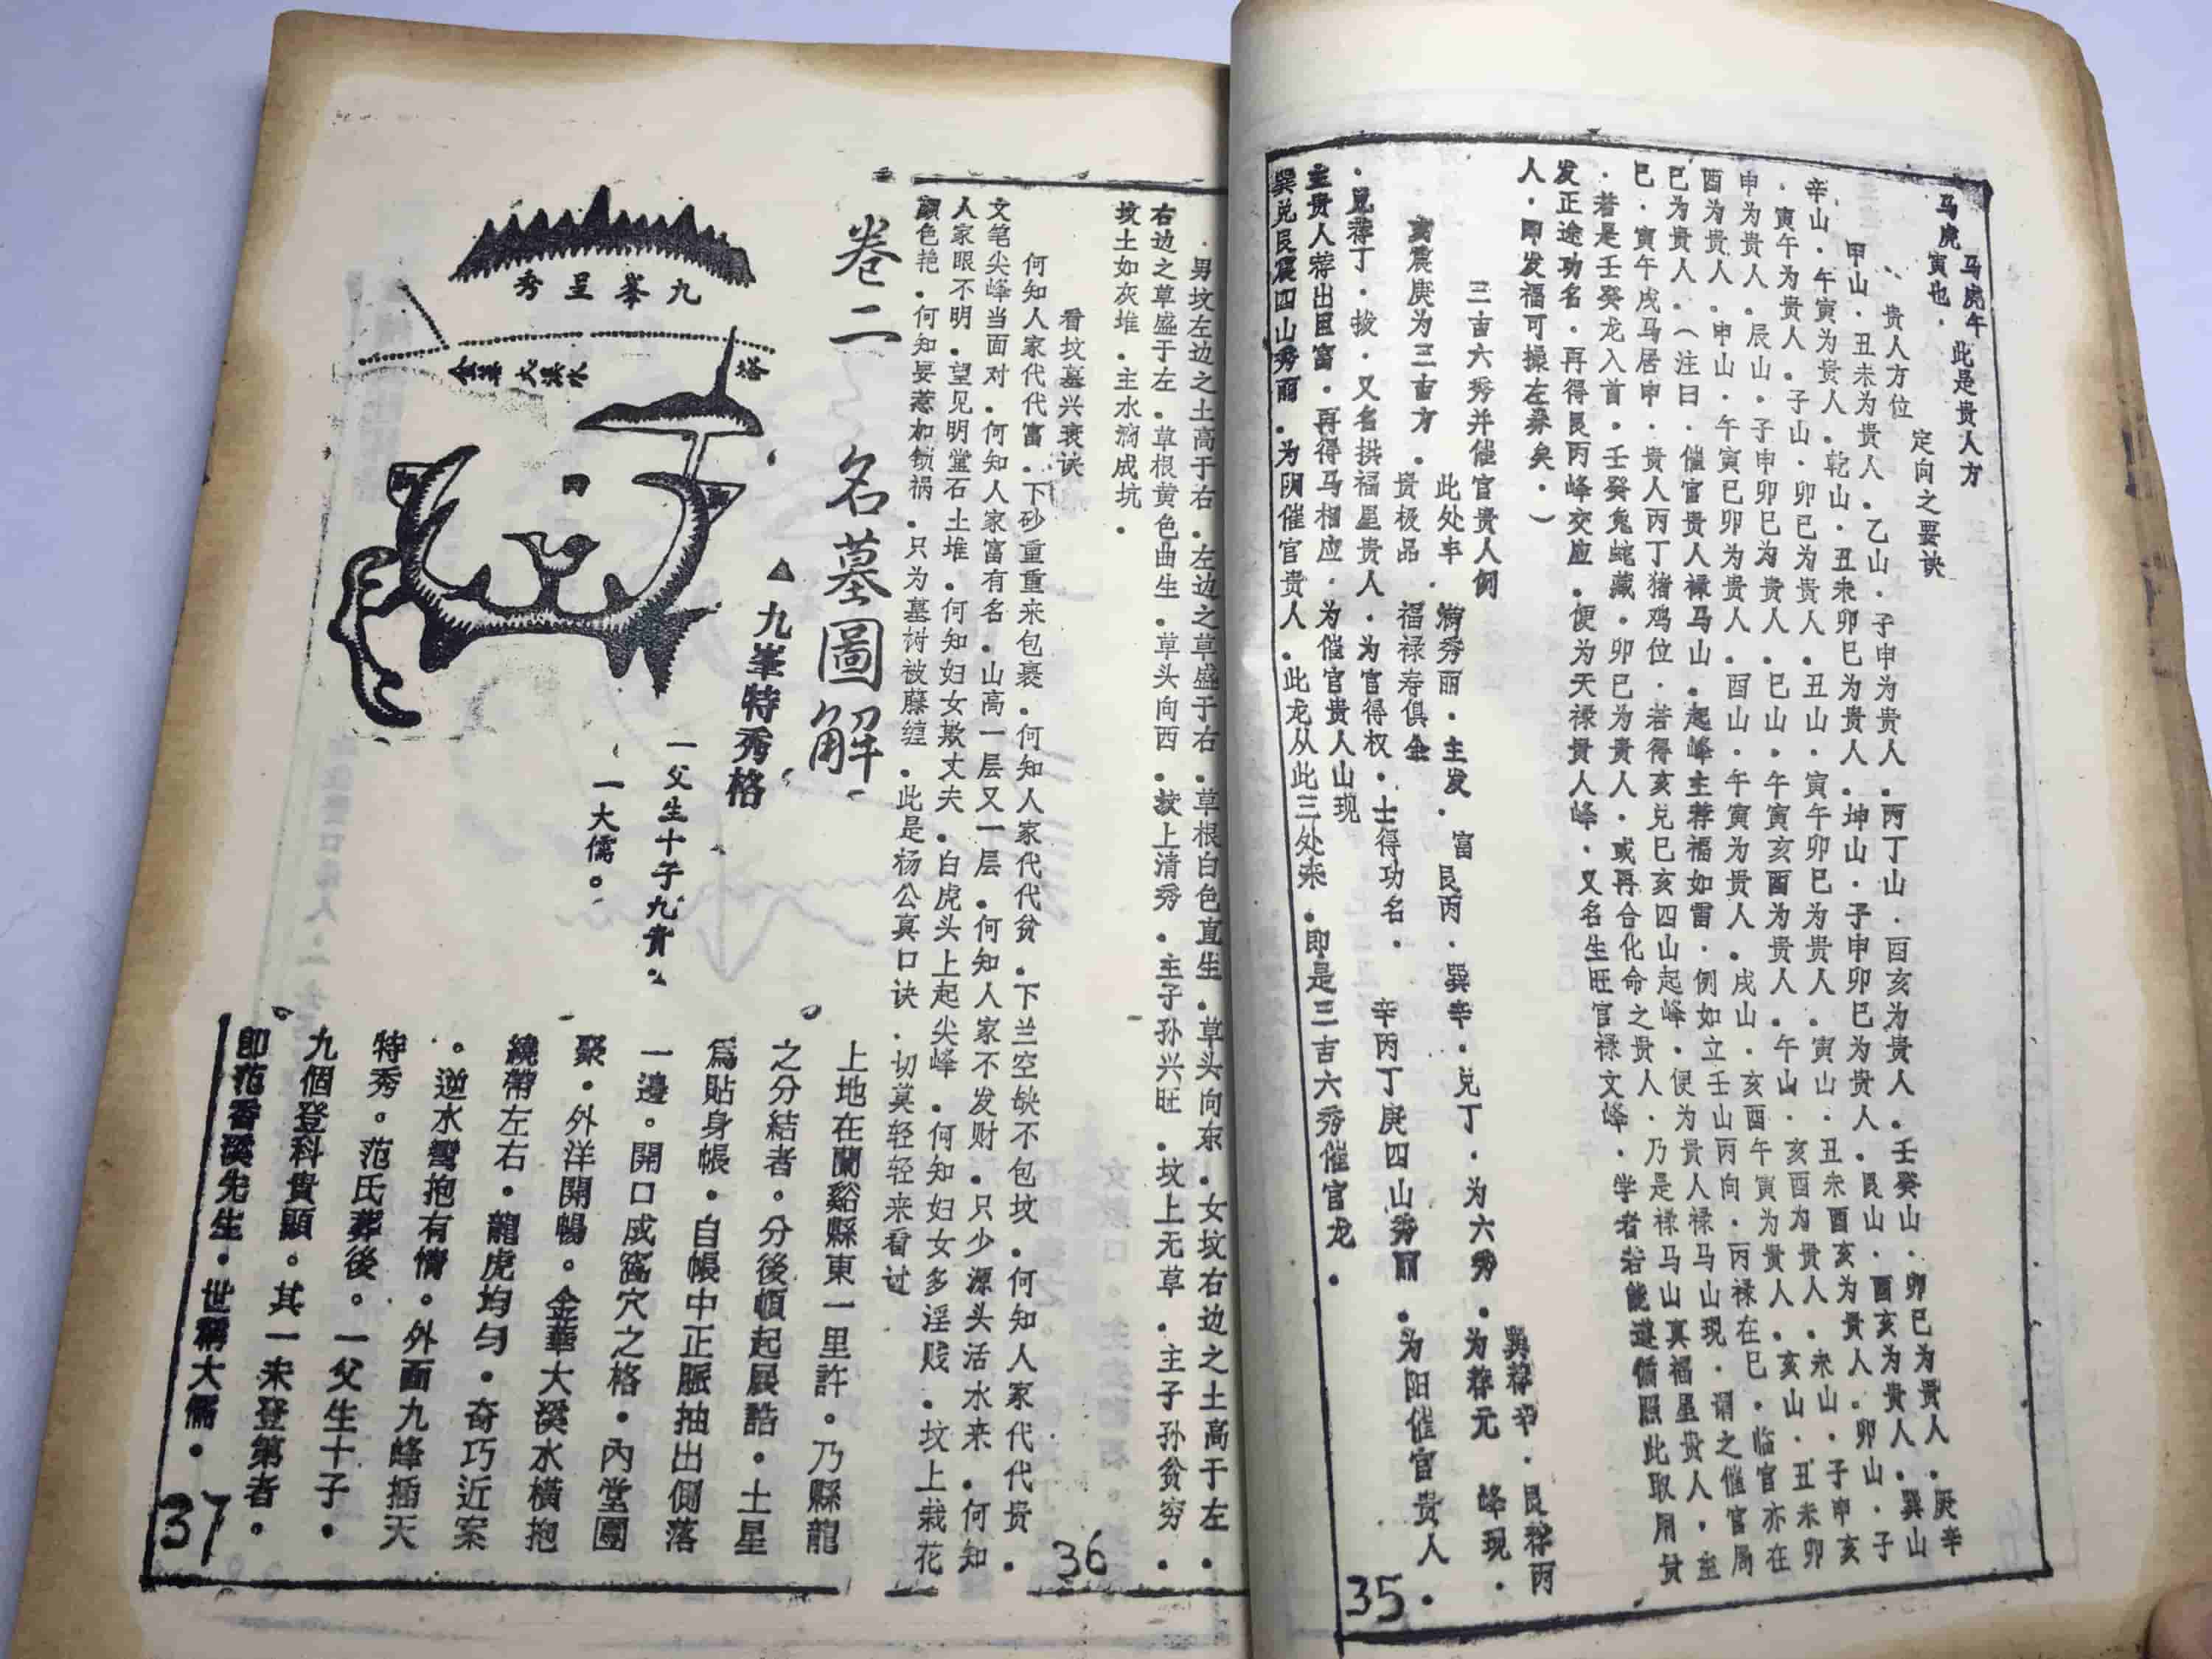 马虎 马虎午
寅也．此是贵人方
、贵人方位 定向之要诀
甲山．丑未为贵人．乙山．子申为贵人．丙丁山．酉亥为贵人．壬癸山．卯巳为贵人．庚辛
辛山．午寅为贵人．乾山．丑未卯巳为贵人．坤山．子申卯巳为贵人．艮山．酉亥为贵人．巽山
．寅午为贵人．子山．卯巳为贵人．丑山．寅午卯巳为贵人．寅山．丑未酉亥为贵人．卯山．子
申为贵人．辰山．子申卯巳为贵人．巳山．午寅亥酉为贵人．午山．亥酉为贵人．未山．子申亥
酉为贵人．申山．午寅巳卯为贵人．酉山．午寅为贵人．戌山．亥酉午寅为贵人．亥山．丑未卯
巳为贵人．（注曰．催官贵人禄马山．起峰主荐福如雷．例如立壬山丙向．丙禄在巳．临官亦在
巳．寅午戌马居申．贵人丙丁猪鸡位．若得亥兑巳亥四山起峰．便为贵人禄马山现．谓之催官局
．若是壬癸龙入首．壬癸兔蛇藏．卯巳为贵人．或再合化命之贵人．乃是禄马山真福星贵人．主
发正途功名．再得艮丙峰交应．便为天禄贵人峰．又名生旺官禄文峰．学者若能遵循照此取用贵
人．即发福可操左券矣．）
三吉六秀并催官贵人例
亥震庚为三吉方．此处丰满秀丽．主发富贵极品．福禄寿俱全
艮丙．巽辛．兑丁．为六秀．为荐元
巽荐辛．艮荐丙
．兑荐丁．拔．又名拱福星贵人．为官得权．士得功名．辛丙丁庚四山秀丽．为阳催官贵人．
峰现．
主贵人荐出巨富．再得马相应．为催官贵人山现
巽兑艮震四山秀丽．为阴催官贵人．此龙从此三处来．即是三吉六秀催官龙．
35
．男坟左边之土高于右．左边之草盛于右．草根白色直生．草头向东．女坟右边之土高于左．
右边之草盛于左．草根黄色曲生．草头向西．坟上清秀．主子孙兴旺．坟上无草．主子孙贫穷．
坟土如灰堆．主水淌成坑．
看坟墓兴衰诀
何知人家代代富．下砂重重来包裹．何知人家代代贫．下兰空缺不包坟．何知人家代代贵．
文笔尖峰当面对．何知人家富有名．山高一层又一层．何知人家不发财．只少源头活水来．何知
人家眼不明．望见明堂石土堆．何知妇女欺丈夫．白虎头上起尖峰．何知妇女多淫贱．坟上栽花
颜色艳．何知要惹枷锁祸．只为墓树被藤缠．此是杨公真口诀．切莫轻轻来看过
36
卷二 名墓圖解
▲九峯特秀格
一父生十子九貴。
一大儒。
九峯呈秀
塔
金華大溪水
上地在蘭谿縣東一里許。乃縣龍
之分結者。分後頓起展誥。土星
爲貼身帳。自帳中正脈抽出側落
一邊。開口成窩穴之格。內堂團
聚。外洋開暢。金華大溪水橫抱
繞帶左右。龍虎均勻。奇巧近案
。逆水彎抱有情。外面九峰插天
特秀。范氏葬後。一父生十子。
九個登科貴顯。其一未登第者。
即范香溪先生。世稱大儒。
37